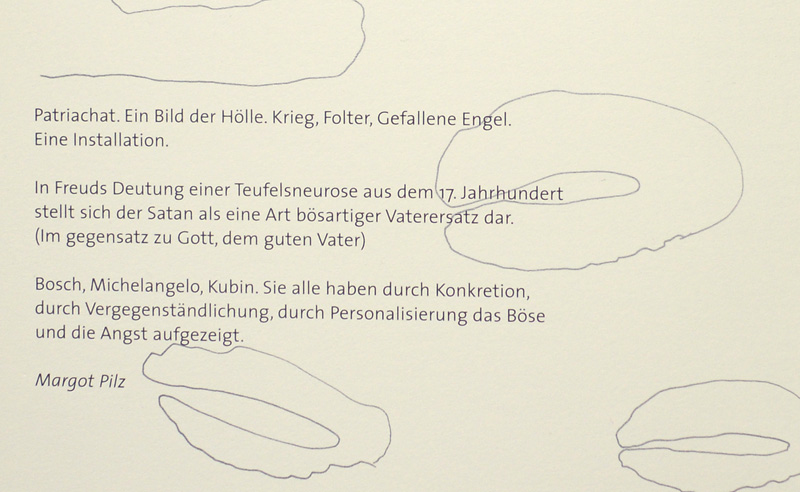 Patriachat. Ein Bild der Hölle. Krieg, Folter, Gefallene Engel.
Eine Installation.
In Freuds Deutung einer Teufelsneurose aus dem 17. Jahrhundert
stellt sich der Satan als eine Art bösartiger Vaterersatz dar.
(Im gegensatz zu Gott, dem guten Vater)
Bosch, Michelangelo, Kubin. Sie alle haben durch Konkretion,
durch Vergegenständlichung, durch Personalisierung das Böse
und die Angst aufgezeigt.
Margot Pilz